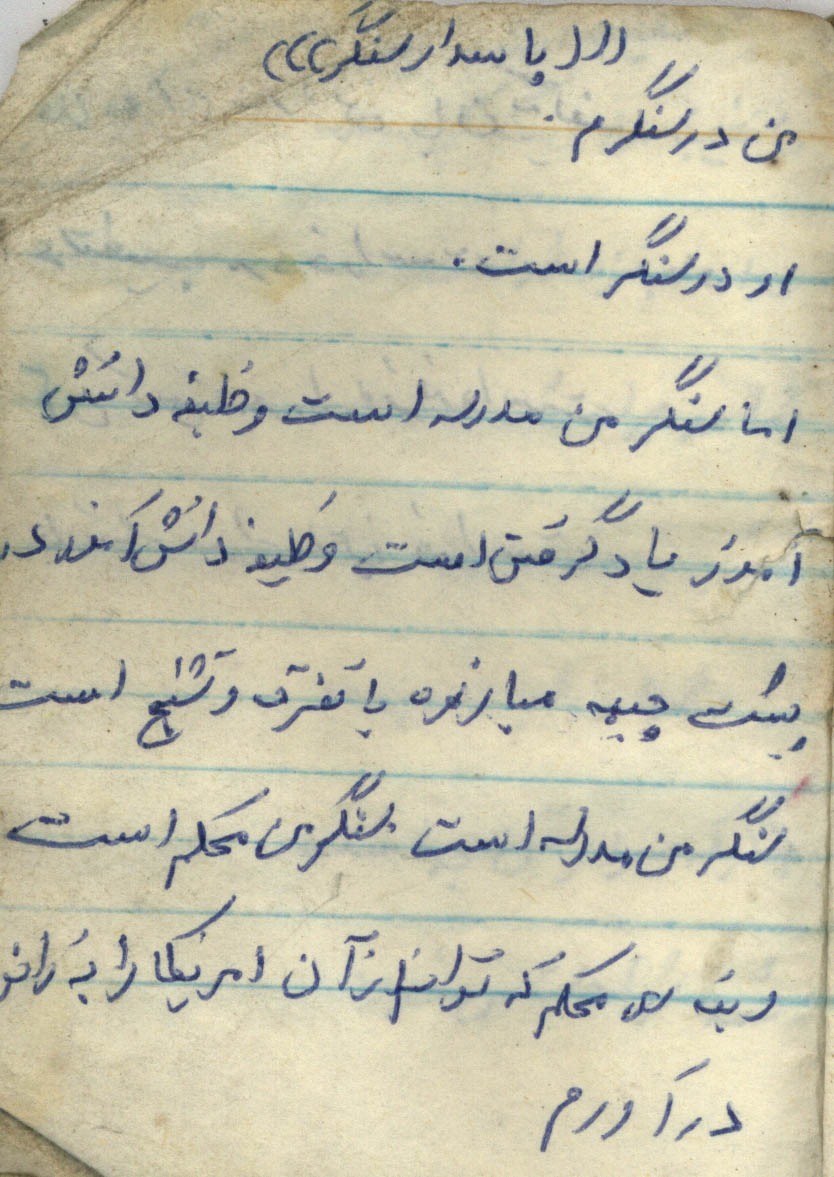 (((پاسدار سنگر)))
من در سنگرم.
او در سنگر است.
اما سنگر من مدرسه است وظیفه دانش
آموز یاد گرفتن است وظیفه دانش آموز در
پشت جبهه مبارزه با تفرقه و تشنج است
سنگر من مدرسه است سنگر من محکم است
محکم که توانم از آن امریکا را به زانو
درآورم